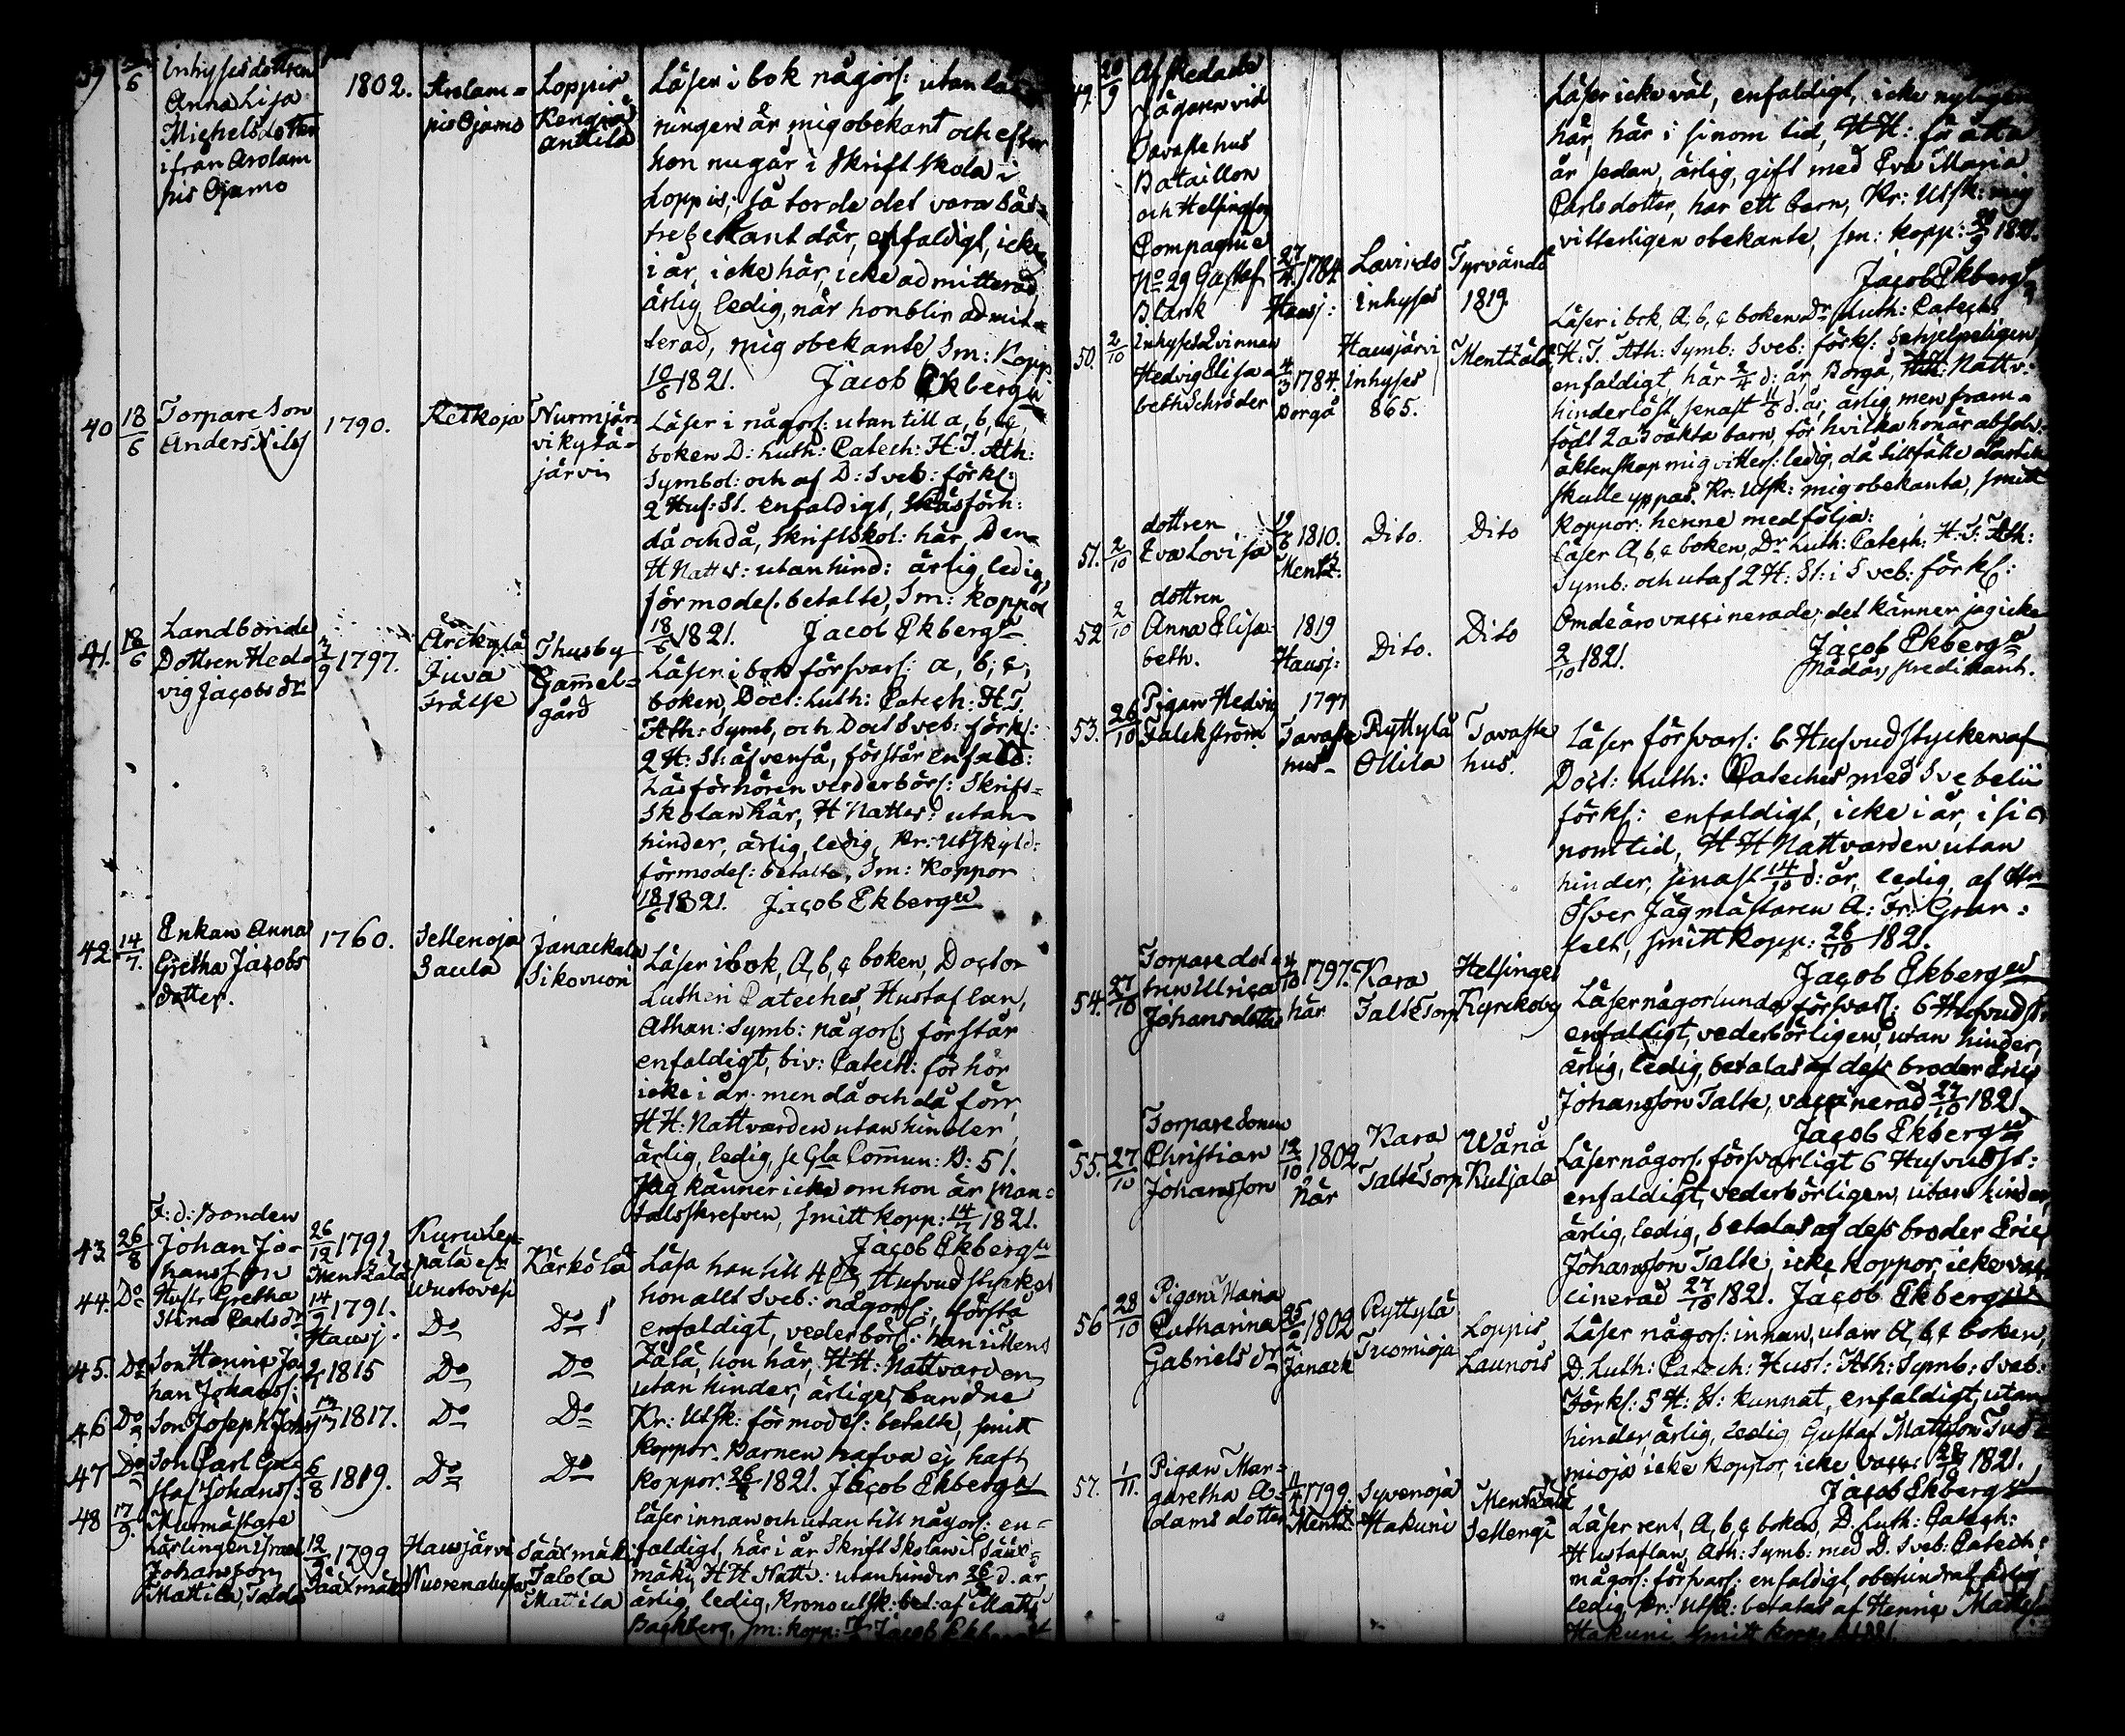 39
6
Inhyses dottren
Anna Lisa
Michelsdotter
ifrån Arolam
pis Ojamo
1802.
Arolam=
pis Ojamo
Loppis
Rengiä
Anttila
Läser i bok någorl: utan
ningen är mig obekant och efter
hon nu går i Skriftskola i
Loppis, så torde det vara bäs=
t bekant där, enfaldigt, icke
i år, icke här, icke admitterad,
ärlig, ledig, när hon blir admit=
terad, mig obekante, Sm: Kopp
10/6 1821. Jacob Ekberg
40
18/6
Torpare Son
Anders Nils
1790.
Retkoja
Nurmjär=
vi kytä=
järvi
Läser i någorl: utan till a, b, c,
boken D: Luth: Catech: H.T. Ath:
Symbol: och af D: Sveb: förkl:
2 Huf: St. enfaldigt, Läsförh:
då och då, Skriftskol: här, Den
H Nattv: utan hind: ärlig, ledig,
förmodel. betalte, Sm: Koppor
18/6 1821. Jacob Ekberg
41.
18/6
Landbonde
Dottren Hed=
vig Jacobs dr
1797.
Arckylä
Juva
Frälse
Thusby
Gammel=
gård
Läser i bok försvarl: a, b, c,
boken, Doct: Luth: Catech: H.T.
Ath: Symb, och Doct Sveb: förkl:
2 H: St: äfvenså, förstår enfald:
Läsförhören vederbörl: Skrift=
Skolan här, H Nattv: utan
hinder, ärlig, ledig, Kr: Utskyld:
förmodel: betalte, Sm: Koppor
18/6 1821. Jacob Ekberg
42
14/7.
Enkan Anna
Gretha Jacobs
dotter.
1760.
Sellenoja
Saula
Janackala
Sikovuori
Läser i bok, A, b, c boken, Doctor
Lutheri Cateches, Hustaflan,
Athan: Symb: någorl: förstår
enfaldigt, biv: Catech: förhör
icke i år men då och då förr,
H H: Nattvarden utan hinder,
ärlig, ledig, se Gla Commun: B: 51.
Jag känner icke om hon är Man=
talsskrefven, smitt kopp: 14/7 1821.
Jacob Ekberg
43
26/8
F: d: Bonden
Johan Jo=
hansson
26/12 1791
Mentzälä
Kuru Lep=
pälä
Kärkölä
44.
Do
Hustr Gretha
Stina Carls dr
14/9 1791.
Hausj:
Do
Do
Läsa han till 4 de Hufvudstycket
hon allt Sveb: någorl:, förstå
enfaldigt, vederbörl: han i Ment
Zälä, hon här, H H: Nattvarden
utan hinder, ärlige, bandne
Kr: Utsk: förmodel: betalte, smitt
koppor. Barnen hafva ej haft
koppor. 26/8 1821. Jacob Ekberg
45.
Do
Son Henric Jo
han Johanss:
1815
Do
Do
46
Do
Son Joseph Joh
1817.
Do
Do
47
Do
Son Carl Gu=
staf Johanss:
6/8 1819.
Do
Do
48
17/9.
Murmästare
Lärlingen Israel
Johansson
Mattila, Talola
12/9 1799
Sääxmäki
Hausjärvi
Sääxmäki
Talola
Mattila
läser innan och utan till någorl: en=
faldigt, här i år Skrift Skolan i Sääx=
mäki, H H Nattv: utan hinder d. år
ärlig, ledig, Krono utsk: bet: af Matts
Backberg, sm: kopp: Jacob Ekberg
49.
20/9
Afskedade
Jägaren vid
Tavastehus
Bataillon
och Helsingfors
Compagnie
No 29 Gustaf
Blank
27/4 1784
Hausj:
Lavinto
Inhyses
Tyrvändö
1819.
Läser icke väl, enfaldigt, icke nyligen
här, här i sinom tid, H H: för åtta
år sedan, ärlig, gift med Eva Maria
Carlsdotter, har ett barn, Kr: Utsk: mig
vitterligen obekante, sm: kopp: 20/9 1821.
Jacob Ekberg
50.
2/10
Inhyses Qvinnan
Hedvig Elisa=
beth Schröder
4/3 1784.
Borgå
Hausjärvi
Inhyses
865.
Mentzälä
Läser i bok, A, b, c boken Dr Luth: Catech:
H. T. Ath: Symb: Sveb: förkl: behjelpeligen,
enfaldigt, här 2/4 d: år, Borgå, Nattv:
hinderlöst, senast d. år, ärlig, men fram=
född 2 a 3 oäkta barn, för hvilka hon är absolv:
äktenskap mig vitterl: ledig, då tillfälle
skulle yppas. Kr: Utsk: mig obekanta, smitt
koppor: henne medfölja:
51.
2/10
dottren
Eva Lovisa
19/6 1810.
Mentz:
Dito.
Dito
Läser A, b, c boken, Dr Luth: Catech: H. T. Ath:
Symb: och utaf 2 H: St: i Sveb: förkl:
52
2/10
dottren
Anna Elisa=
beth.
1819
Hausj:
Dito.
Dito
Om de äro vaccinerade, det känner jag icke
2/10 1821. Jacob Ekberg
Nådår, predikant.
53.
26/10
Pigan Hedvig
Falckström
1797
Tavaste
hus
Ryttylä
Ollila
Tavaste
hus.
Läser försvarl: 6 Hufvudstycken af
Doct: Luth: Cateches med Svebelii
förkl: enfaldigt, icke i år, i si
nom tid, H H Nattvarden utan
hinder, senast 14/10 d: år, ledig, af Hr
Öfver Jägmästaren A: Fr: Gran=
felt, smitt kopp: 26/10 1821.
Jacob Ekberg
54.
27/10
Torpare dot
tren Ulrica
Johansdotter
4/10 1797.
här
Kara
Talte Torp
Helsinge
Kyrckoby
Läser någorlunda försvarl: 6 Hufvudst:
enfaldigt, vederbörligen, utan hinder,
ärlig, ledig, betalas af dess broder Eric
Johansson Talte, vaccinerad 27/10 1821.
Jacob Ekberg
55.
27/10
Torpare Sonen
Christian
Johansson
12/10 1802
här
Kara
Talte Torp
Wånå
Kutjala
Läser någorl. försvarligt 6 Hufvudst:
enfaldigt, vederbörligen, utan hinder,
ärlig, ledig, betalas af dess broder Eric
Johansson Talte, icke koppor, icke vac
cinerad 27/10 1821. Jacob Ekberg
56
28/10
Pigan Maria
Catharina
Gabriels dr
25/2 1802
Janack
Ryttylä
Tuomioja
Loppis
Launois
Läser någorl: innan, utan A, b, c boken,
D. Luth: Catech: Hust: Ath: Symb: Sveb:
Förkl: 5 H: St: kunnat, enfaldigt, utan
hinder, ärlig, ledig, Gustaf Mattsson Tuo
mioja icke koppor, icke vacc: 28/10 1821.
Jacob Ekberg
57.
1/11.
Pigan Mar=
garetha A=
dams dotter
11/4 1799.
Mentz:
Syvenojä
Hakuni
Mentzälä
Sellengi
Läser rent, A, b, c boken, D. Luth: Catech:
Hustaflan, Ath: Symb: med D. Sveb: Catech:
någorl: försvarl: enfaldigt, obehindrat, ärlig
ledig, Kr: Utsk: betalas af Henric Matts
Hakuni, smitt kopp